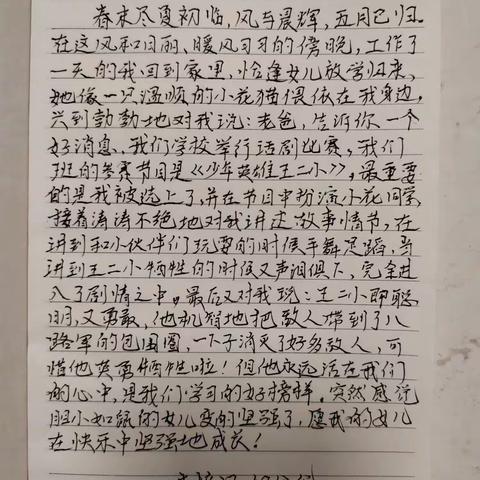 春末尽夏初临，风与晨辉，五月已归。
在这风和日丽，暖风习习的傍晚，工作了
一天的我回到家里，恰逢女儿放学归来，
她像一只温顺的小花猫偎依在我身边，
兴致勃勃地对我说：老爸，告诉你一个
好消息，我们学校举行话剧比赛，我们
班的参赛节目是《少年英雄王二小》，最重要
的是我被选上了，并在节目中扮演小花同学，
接着涛涛不绝地对我讲述故事情节，在
讲到和小伙伴们玩耍的时候手舞足蹈，当
讲到王二小牺牲的时候又声泪俱下，完全进
入了剧情之中。最后又对我说：王二小即聪
明，又勇敢，他机智地把敌人带到了八
路军的包围圈，一下子消灭了好多敌人，可
惜他英勇牺牲啦！但他永远活在我们
的心中，是我们学习的好榜样，突然感觉
胆小如鼠的女儿变的坚强了，愿我的女儿
在快乐中坚强地成长！